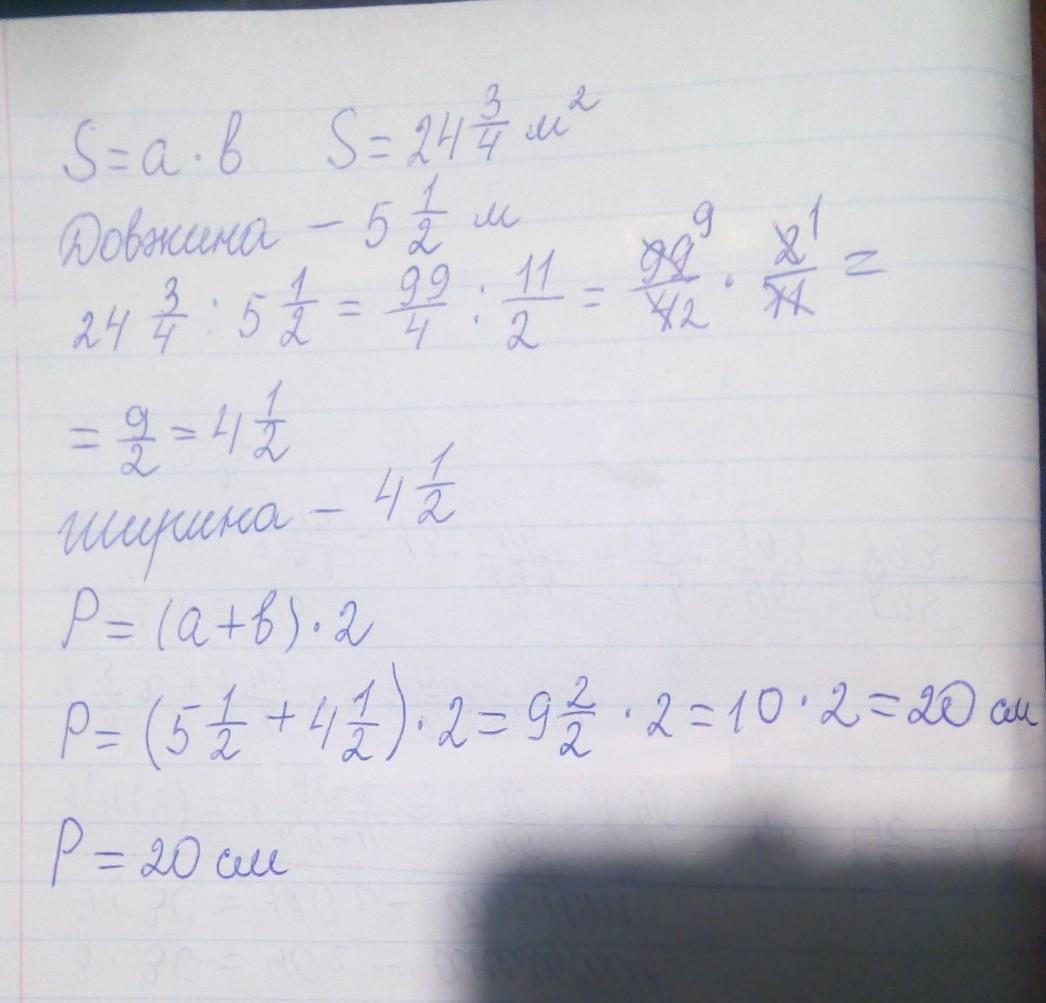 S = a · b   S = 24 3/4 м²
Довжина – 5 1/2 м
24 3/4 : 5 1/2 = 99/4 : 11/2 = 99 9/4 2 · 2 1/11 =
= 9/2 = 4 1/2
ширина – 4 1/2
P = (a + b) · 2
P = (5 1/2 + 4 1/2) · 2 = 9 2/2 · 2 = 10 · 2 = 20 см
P = 20 см